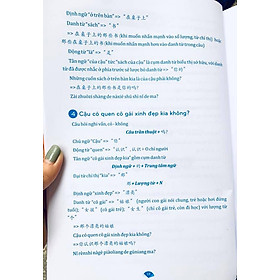 Định ngữ "ở trên bàn" => "在桌子上"
Danh từ "sách" => "书"
=> 在桌子上那些书 (khi muốn nhấn mạnh vào số lượng, từ chỉ thị) hoặc
那些在桌子上的书 (khi muốn nhấn mạnh hơn vào danh từ trung tâm)
Động từ "là" => "是"
Tân ngữ "của cậu" tức "sách của cậu" là cụm danh từ sở hữu, nhưng với danh
từ đã được nhắc ở phía trước sẽ lược bỏ danh từ => "你的"
Những cuốn sách ở trên bàn kia là của cậu phải không?
=> 在桌子上的那些书是你的吗?
Zài zhuōzi shàng de nàxiē shū shì nǐ de ma?
4 Cậu có quen cô gái xinh đẹp kia không?
Câu hỏi nghi vấn, có - không
Câu trần thuật + 吗?
Chủ ngữ "Cậu" => "你"
Động từ "quen" => "认识", 认识 + O chỉ người
Tân ngữ "cô gái xinh đẹp kia" gồm cụm danh từ
Định ngữ + 的 + Trung tâm ngữ
Đại từ chỉ thị "kia" => "那"
那 + Lượng từ + N
Định ngữ "xinh đẹp" => "漂亮"
Danh từ "cô gái" => "姑娘" (người con gái nói chung, trẻ hoặc hơi đứng
tuổi), "女孩" (cô gái trẻ), "女生" (chỉ cô gái trẻ, còn đi học) với lượng từ
"个"
=> 那个漂亮的姑娘
Cậu có quen cô gái xinh đẹp kia không?
=> 你认识那个漂亮的姑娘吗?
Nǐ rènshi nàgè piàoliang de gūniang ma?